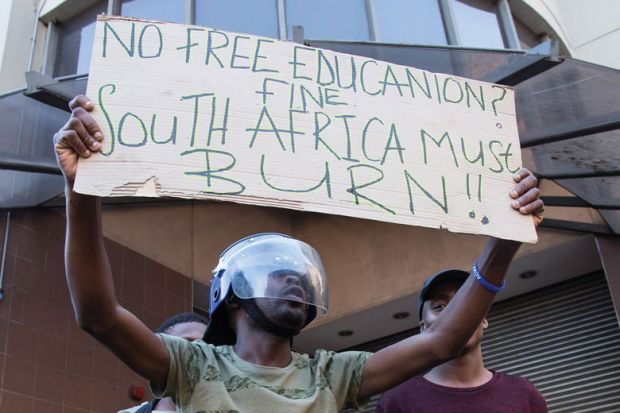 NO FREE EDUCANION?
FINE.
SOUTH AFRICA MUST
BURN!!